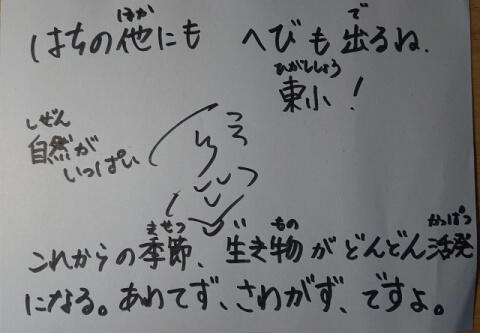 はちの他にも へびも出るね.
ほか で
東小!
ひがししょう
自然が
しぜん
いっぱい
これからの季節、生き物がどんどん活発
きせつ い もの かっぱつ
になる。あわてず、さわがず、ですよ。